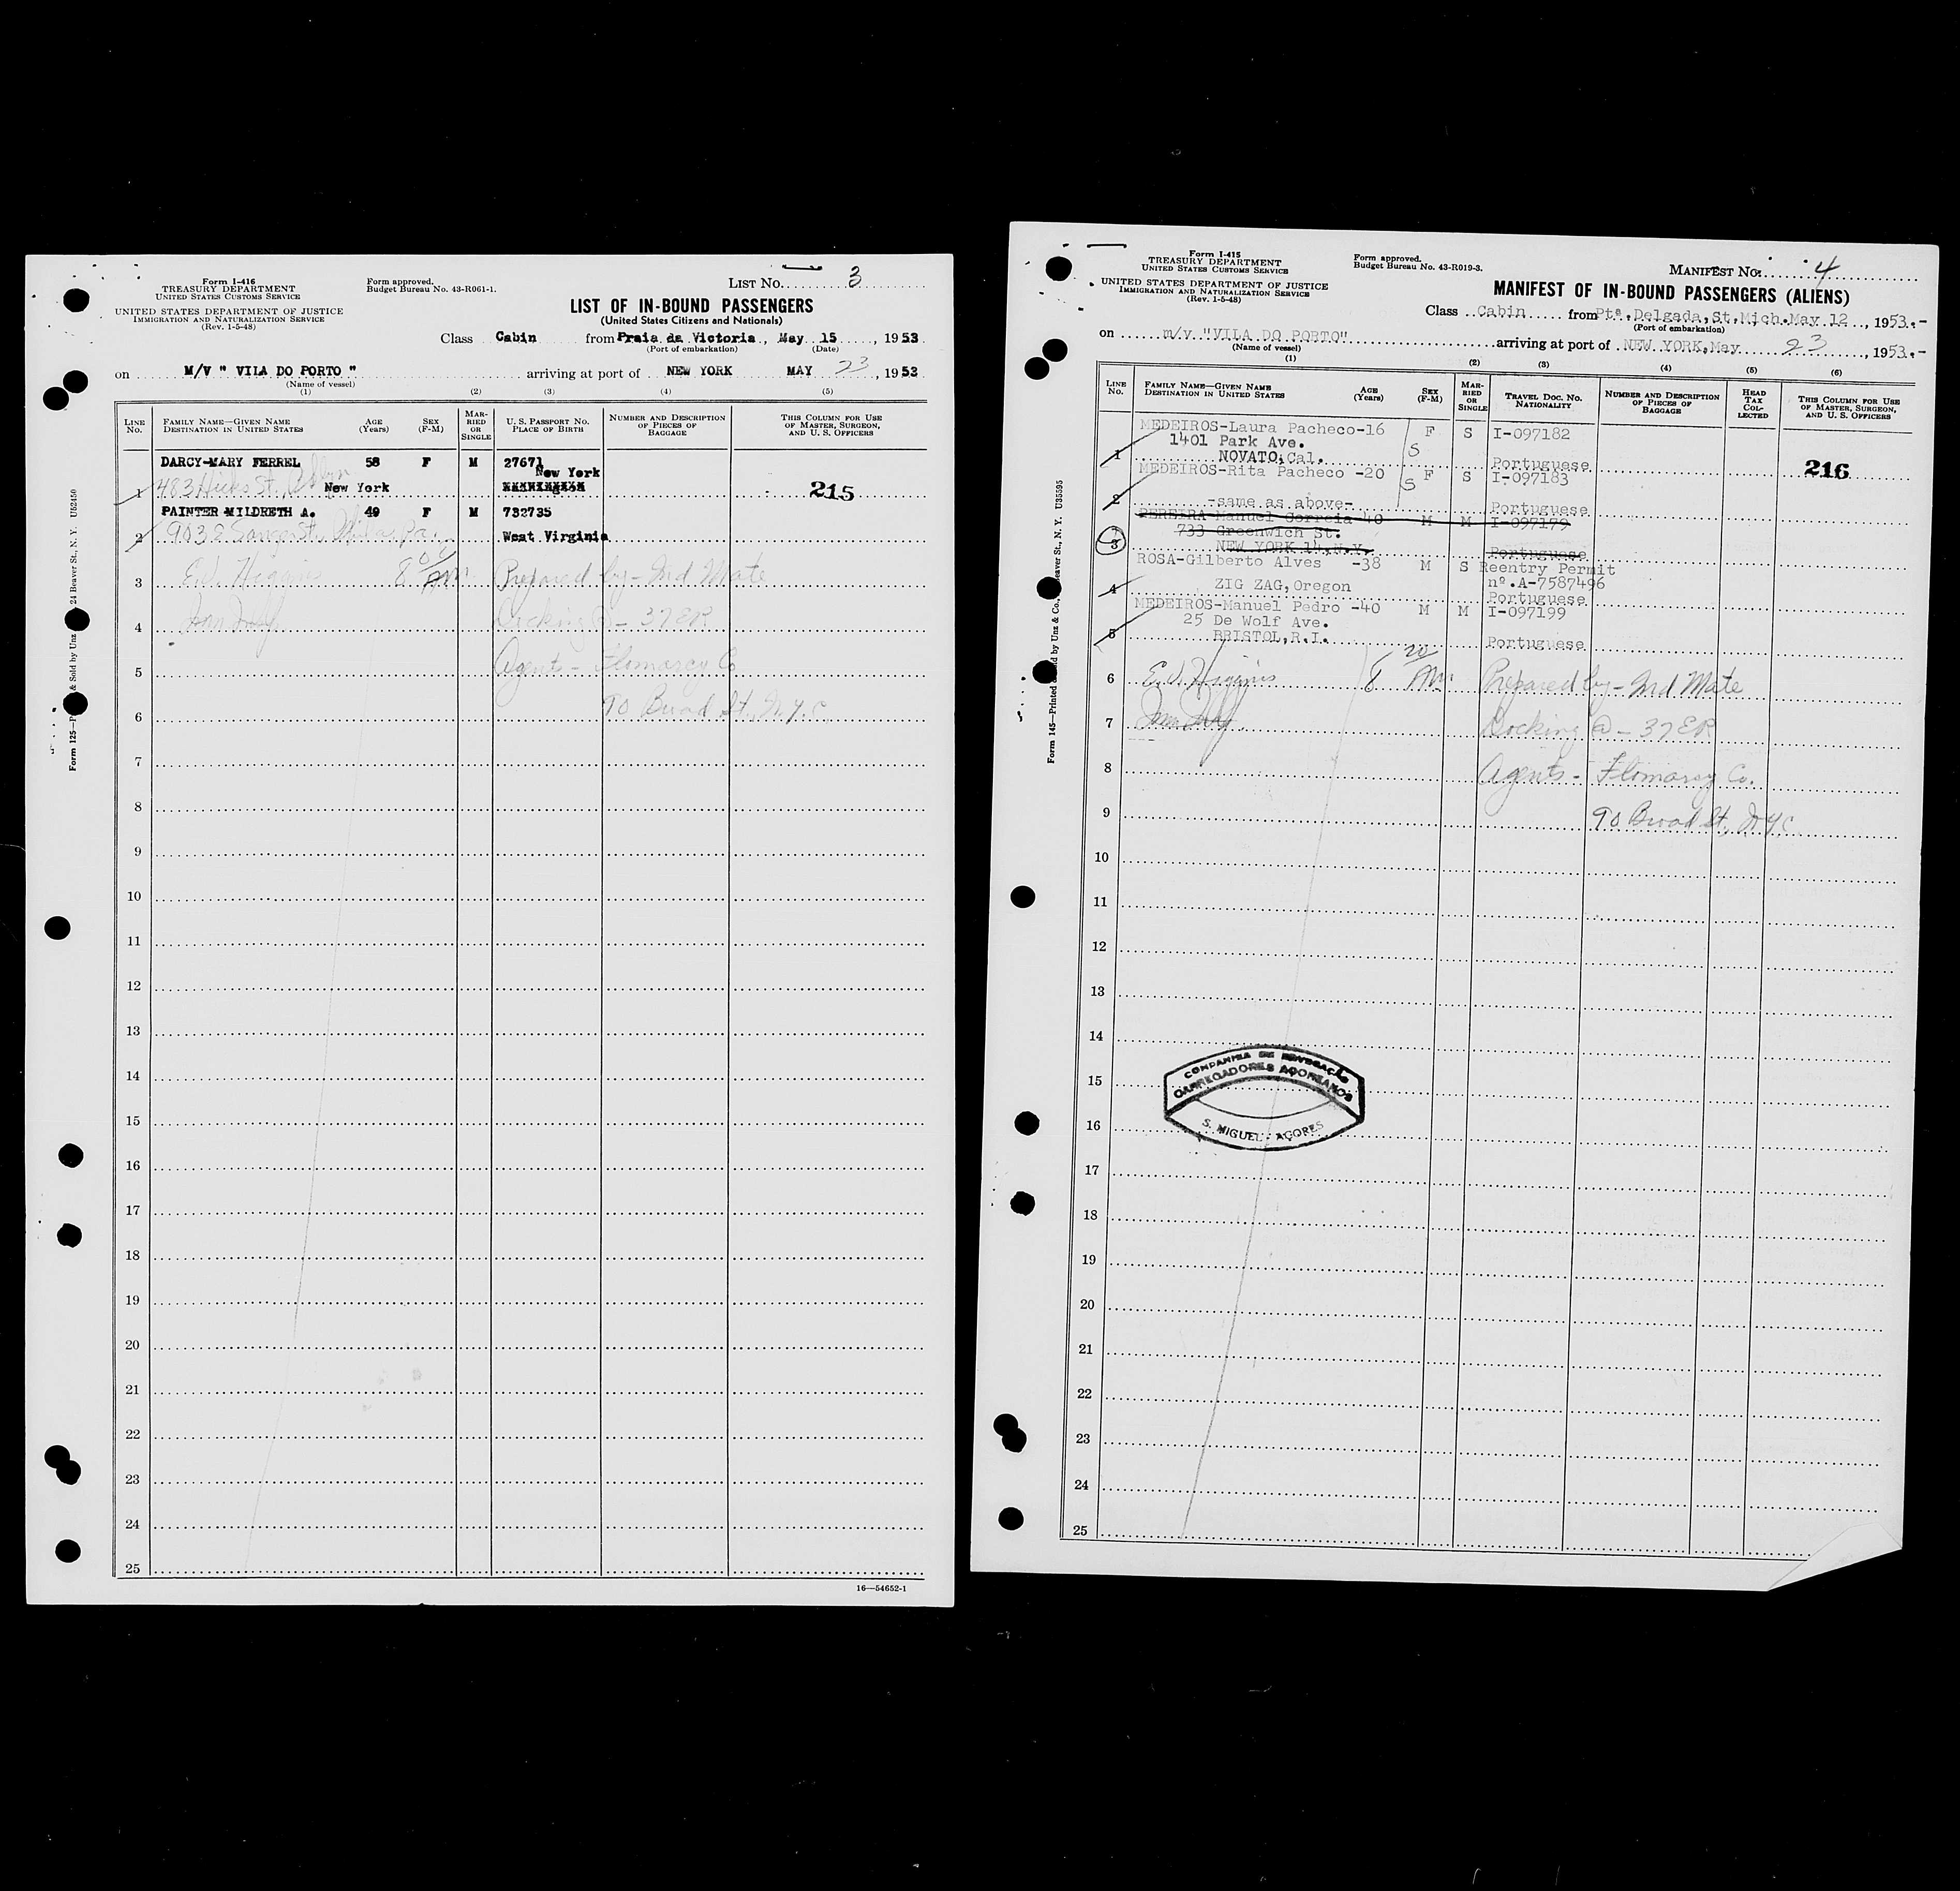 Form I-416
TREASURY DEPARTMENT
UNITED STATES CUSTOMS SERVICE
UNITED STATES DEPARTMENT OF JUSTICE
IMMIGRATION AND NATURALIZATION SERVICE
(Rev. 1-5-48)
Form approved.
Budget Bureau No. 43-R061-1.
LIST No. 3
LIST OF IN-BOUND PASSENGERS
(United States Citizens and Nationals)
Class Cabin from Praia da Victoria, May 15, 1953
(Port of embarkation) (Date)
on M/V " VILA DO PORTO " arriving at port of NEW YORK MAY 23, 1953
(Name of vessel)
(1) (2) (3) (4) (5)
LINE No. FAMILY NAME—GIVEN NAME DESTINATION IN UNITED STATES AGE (Years) SEX (F-M) MARRIED OR SINGLE U. S. PASSPORT NO. PLACE OF BIRTH NUMBER AND DESCRIPTION OF PIECES OF BAGGAGE THIS COLUMN FOR USE OF MASTER, SURGEON, AND U. S. OFFICERS
DARCY-MARY FERREL 58 F M 27671
New York
1 483 Hicks St., Bklyn New York 215
PAINTER MILDRETH A. 49 F M 732735
2 903 E Sanger St., Phila, Pa. West Virginia
3 E.J. Higgins 8 00 AM Prepared by - 2nd Mate
4 Docking @ - 37 ER
5 Agents - Flomarcy Co
6 90 Broad St., N.Y.C.
7
8
9
10
11
12
13
14
15
16
17
18
19
20
21
22
23
24
25
16—54652-1
Form 125—P & Sold by Unz 24 Beaver St., N. Y. U52450
Form I-415
TREASURY DEPARTMENT
UNITED STATES CUSTOMS SERVICE
UNITED STATES DEPARTMENT OF JUSTICE
IMMIGRATION AND NATURALIZATION SERVICE
(Rev. 1-5-48)
Form approved.
Budget Bureau No. 43-R019-3.
MANIFEST No. 4
MANIFEST OF IN-BOUND PASSENGERS (ALIENS)
Class Cabin from Ptª.Delgada,St.Mich.May 12, 1953.-
(Port of embarkation)
on m/v "VILA DO PORTO" arriving at port of NEW YORK,May 23, 1953.-
(Name of vessel)
(1) (2) (3) (4) (5) (6)
LINE No. FAMILY NAME—GIVEN NAME DESTINATION IN UNITED STATES AGE (Years) SEX (F-M) MARRIED OR SINGLE TRAVEL DOC. NO. NATIONALITY NUMBER AND DESCRIPTION OF PIECES OF BAGGAGE HEAD TAX COLLECTED THIS COLUMN FOR USE OF MASTER, SURGEON, AND U. S. OFFICERS
MEDEIROS-Laura Pacheco-16 F S I-097182
1401 Park Ave. S
1 NOVATO,Cal. Portuguese 216
MEDEIROS-Rita Pacheco -20 S F S I-097183
2 -same as above- Portuguese
PEREIRA-Manuel Correia-40 M M I-097179
733 Greenwich St.
3 NEW YORK 14,N.Y. Portuguese
ROSA-Gilberto Alves -38 M S Reentry Permit
4 ZIG ZAG,Oregon nº.A-7587496
Portuguese
MEDEIROS-Manuel Pedro -40 M M I-097199
25 De Wolf Ave.
5 BRISTOL,R.I. Portuguese
6 E.J. Higgins 8 20 AM Prepared by - 2nd Mate
7 Docking @ - 37 ER
8 Agents - Flomarcy Co.
9 90 Broad St., N.Y.C
10
11
12
13
14
15
16
17
18
19
20
21
22
23
24
25
COMPANHIA DE NAVEGAÇÃO
CARREGADORES AÇOREANOS
S. MIGUEL - AÇORES
Form 145—Printed & Sold by Unz & Co., Beaver St., N. Y. U35595